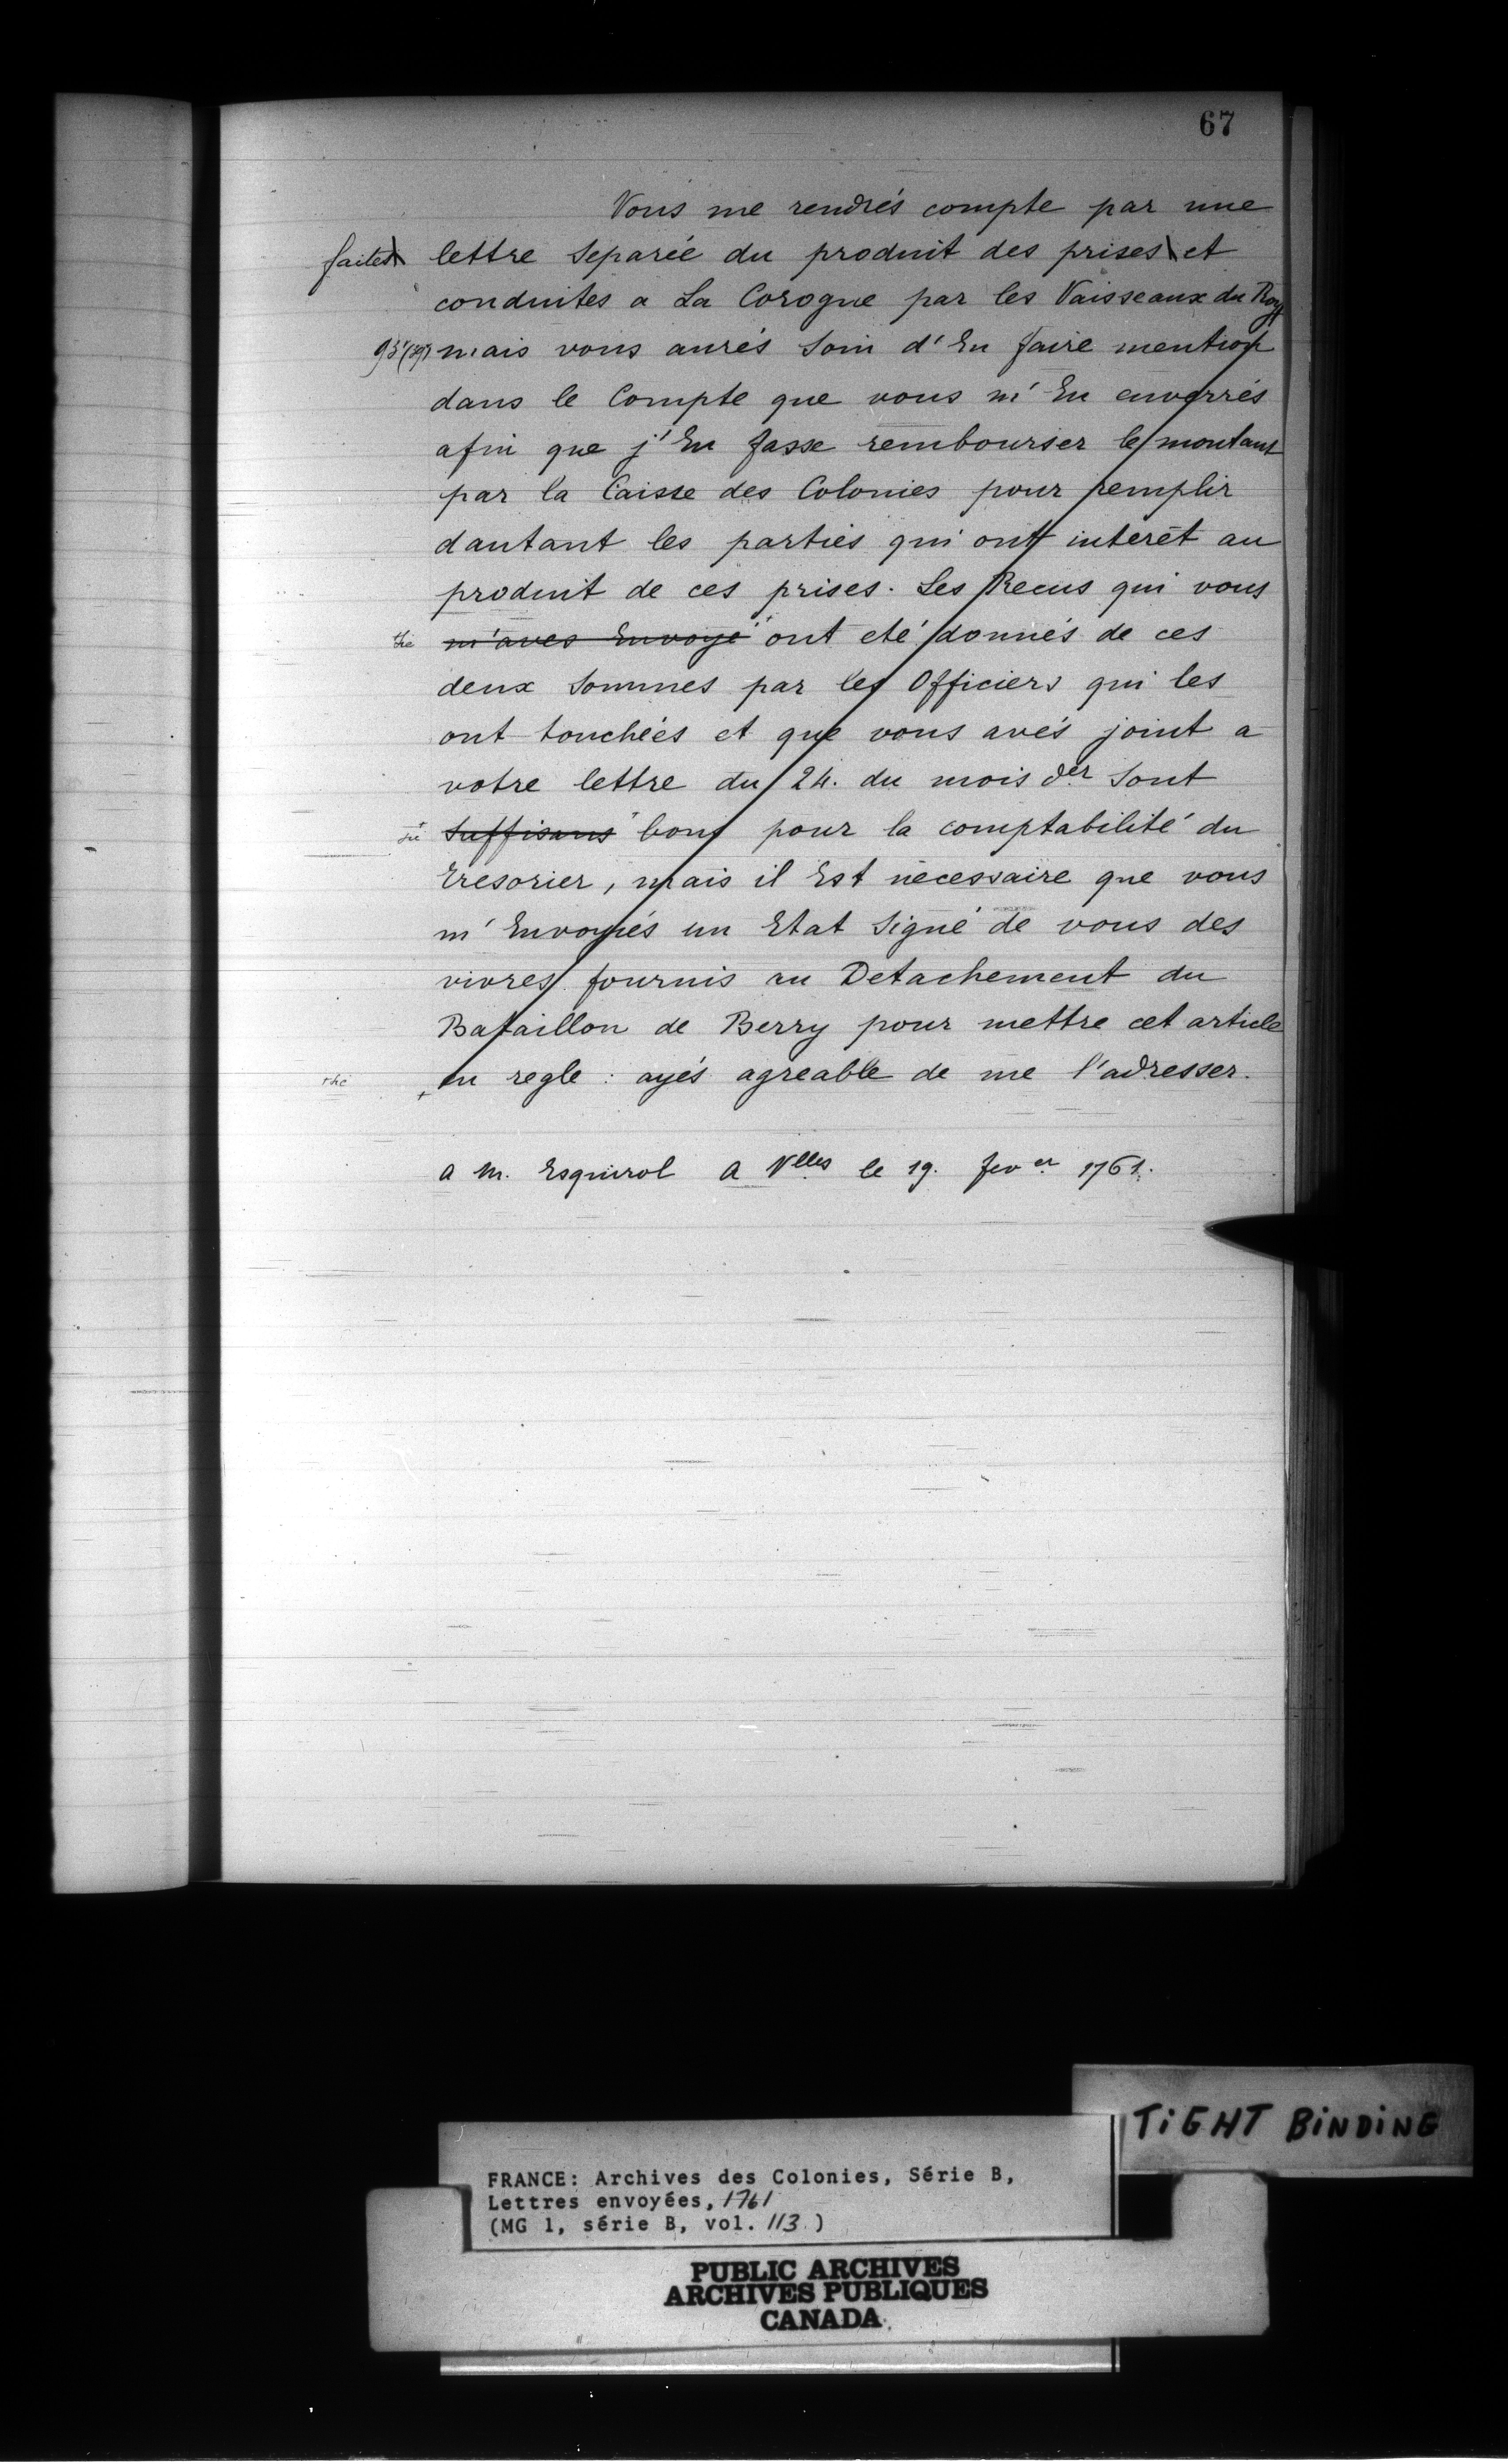 67
Vous me rendrés compte par une
faites lettre Separée du produit des prises et
conduites a La Corogne par les Vaisseaux du Roy
mais vous aurés Soin d'En faire mention
dans le Compte que vous m'En enverrés
afin que j'En fasse rembourser le montant
par la Caisse des Colonies pour remplir
dautant les parties qui ont interêt au
produit de ces prises. Les Recus qui vous
m'aves Envoyé ont eté donnés de ces
deux Sommes par les Officiers qui les
ont touchéés et que vous avés joint a
votre lettre du 24. du mois der Sont
Suffisans bons pour la comptabilité du
Tresorier, mais il Est necessaire que vous
m'Envoyiés un Etat Signé de vous des
vivres fournis au Detachement du
Bataillon de Berry pour mettre cet article
en regle : ayés agreable de me l'adresser.
a M. Esquirol A Vlles le 19. fever 1761.
TIGHT BINDING
FRANCE: Archives des Colonies, Série B,
Lettres envoyées, 1761
(MG 1, série B, vol. 113.)
PUBLIC ARCHIVES
ARCHIVES PUBLIQUES
CANADA